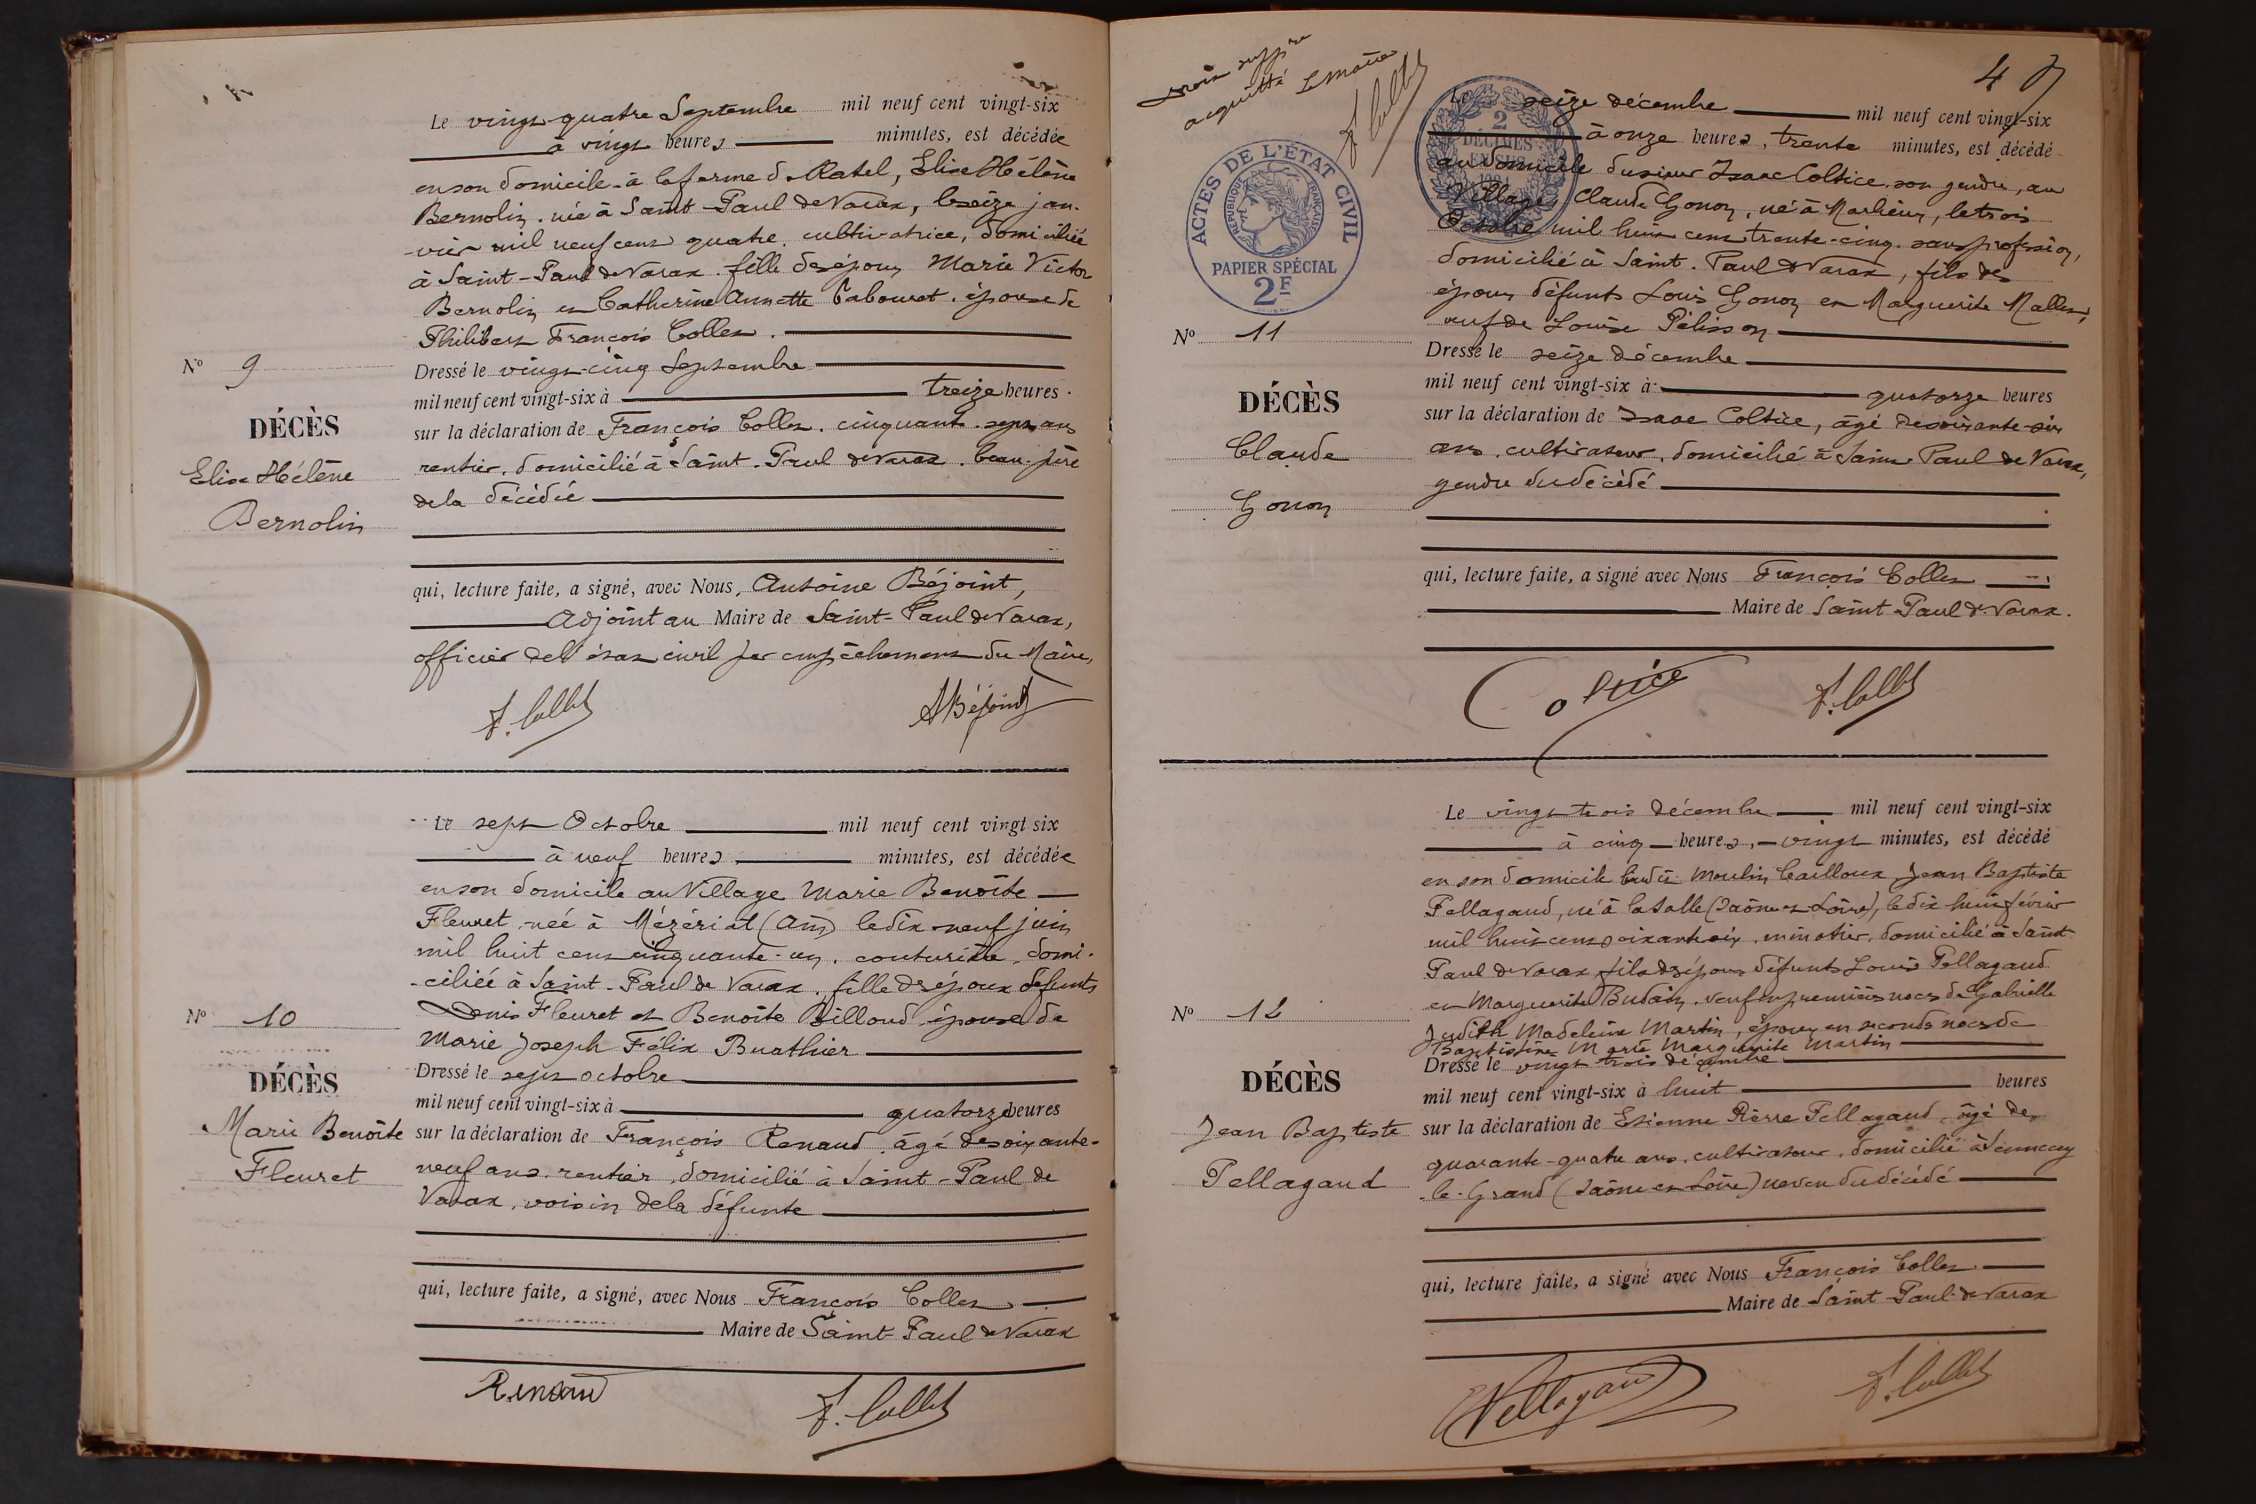 Le vingt quatre Septembre mil neuf cent vingt-six
à vingt heures minutes, est décédée
en son domicile à la ferme de Ratel, Elise Hélène
Bernolin, née à Saint-Paul de Varax, le seize jan-
-vier mil neuf cent quatre, cultivatrice, domiciliée
à Saint-Paul de Varax, fille des époux Marie Victor
Bernolin et Catherine Annette Tabouret, épouse de
Philibert François Collet.
Nº 9
Dressé le vingt-cinq Septembre
mil neuf cent vingt-six à treize heures.
DÉCÈS
sur la déclaration de François Collet, cinquante-sept ans
Elise Hélène
rentier, domicilié à Saint-Paul de Varax, beau-père
de la décédée
Bernolin
qui, lecture faite, a signé, avec Nous, Antoine Béjoint,
Adjoint au Maire de Saint-Paul de Varax,
officier de l'état civil par empêchement du Maire,
F. Collet ABéjoint
Le sept Octobre mil neuf cent vingt six
à neuf heures minutes, est décédée
en son domicile au Village Marie Benoîte
Fleuret, née à Mézériat (Ain) le dix-neuf juin
mil huit cent cinquante-un, couturière, domi-
-ciliée à Saint-Paul de Varax, fille des époux défunts
Denis Fleuret et Benoîte Billoud, épouse de
Nº 10
Marie Joseph Félix Buathier
DÉCÈS
Dressé le sept octobre
mil neuf cent vingt-six à quatorze heures
Marie Benoîte
sur la déclaration de François Renaud, âgé de soixante-
Fleuret
neuf ans, rentier, domicilié à Saint-Paul de
Varax, voisin de la défunte
qui, lecture faite, a signé, avec Nous François Collet
Maire de Saint-Paul de Varax
Renaud F. Collet
4
acquitté Le maire
F. Collet
ACTES DE L'ÉTAT CIVIL
RÉPUBLIQUE FRANÇAISE
PAPIER SPÉCIAL
2F
2
DÉCIMES
EN SUS
Le seize décembre mil neuf cent vingt-six
à onze heures, trente minutes, est décédé
au domicile du sieur Isaac Coltice, son gendre, au
Village, Claude Gonon, né à Marlieux, le trois
Octobre mil huit cent trente-cinq, sans profession,
domicilié à Saint-Paul de Varax, fils des
époux défunts Louis Gonon et Marguerite Mallet,
veuf de Louise Pélisson
Nº 11
Dressé le seize décembre
mil neuf cent vingt-six à quatorze heures
DÉCÈS
sur la déclaration de Isaac Coltice, âgé de soixante-six
Claude
ans, cultivateur, domicilié à Saint-Paul de Varax,
gendre du décédé
Gonon
qui, lecture faite, a signé avec Nous François Collet
Maire de Saint-Paul de Varax.
Coltice F. Collet
Le vingt trois décembre mil neuf cent vingt-six
à cinq heures, vingt minutes, est décédé
en son domicile Moulin Cailloux, Jean Baptiste
Pellagaud, né à la Salle (Saône et Loire), le dix huit février
mil huit cent soixante six, minotier, domicilié à Saint
Paul de Varax, fils des époux défunts Louis Pellagaud
et Marguerite Budin, veuf en premières noces de Gabrielle
Nº 12
Judith Madeleine Martin, époux en seconds noces de
Baptistine Marie Marguerite Martin
Dressé le vingt trois décembre
DÉCÈS
mil neuf cent vingt-six à huit heures
Jean Baptiste
sur la déclaration de Etienne Pierre Pellagaud, âgé de
quarante-quatre ans, cultivateur, domicilié à Sennecey
Pellagaud
-le-Grand (Saône et Loire) neveu du décédé
qui, lecture faite, a signé avec Nous François Collet
Maire de Saint-Paul de Varax
Pellagaud F. Collet